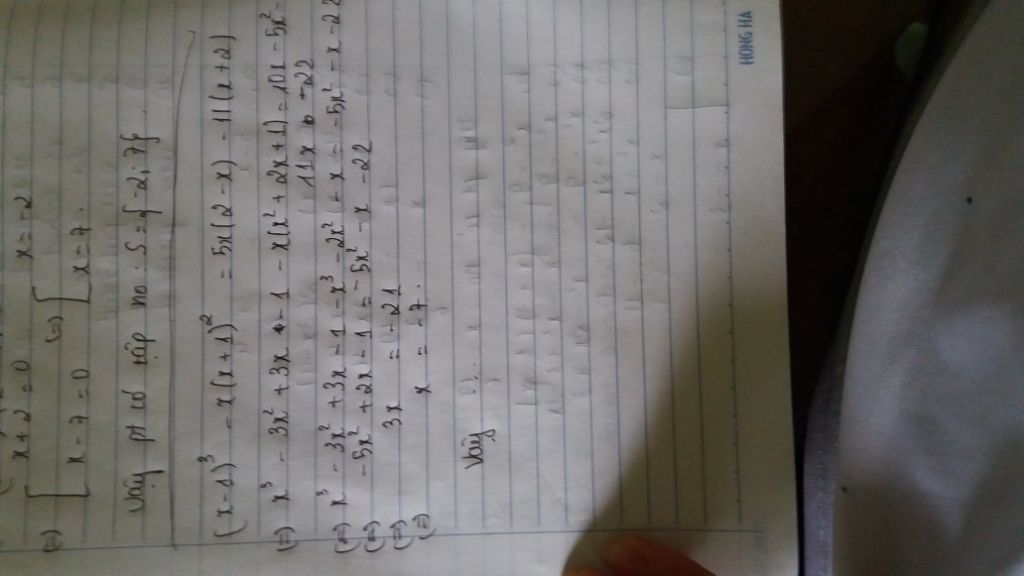 x + 2 = 0 x = -2
(=) [ x - 7 = 0 (=) [ x = 7.
Vậy pt có tập no: S = { -2; 7 }.
(x - 1)³ - x(x + 1)² = 5x(2 - x) - 11(x + 2)
(=) x³ - 3x² + 3x - 1 - x(x² + 2x + 1) = 10x - 5x² -
11x - 22
(=) x³ - 3x² + 3x - 1 - x³ - 2x² - x = -5x² - x - 22
(=) -5x² + 2x - 1 = -5x² - x - 22
(=) 3x = -21
(=) x = -7.
Vậy
HONG HA